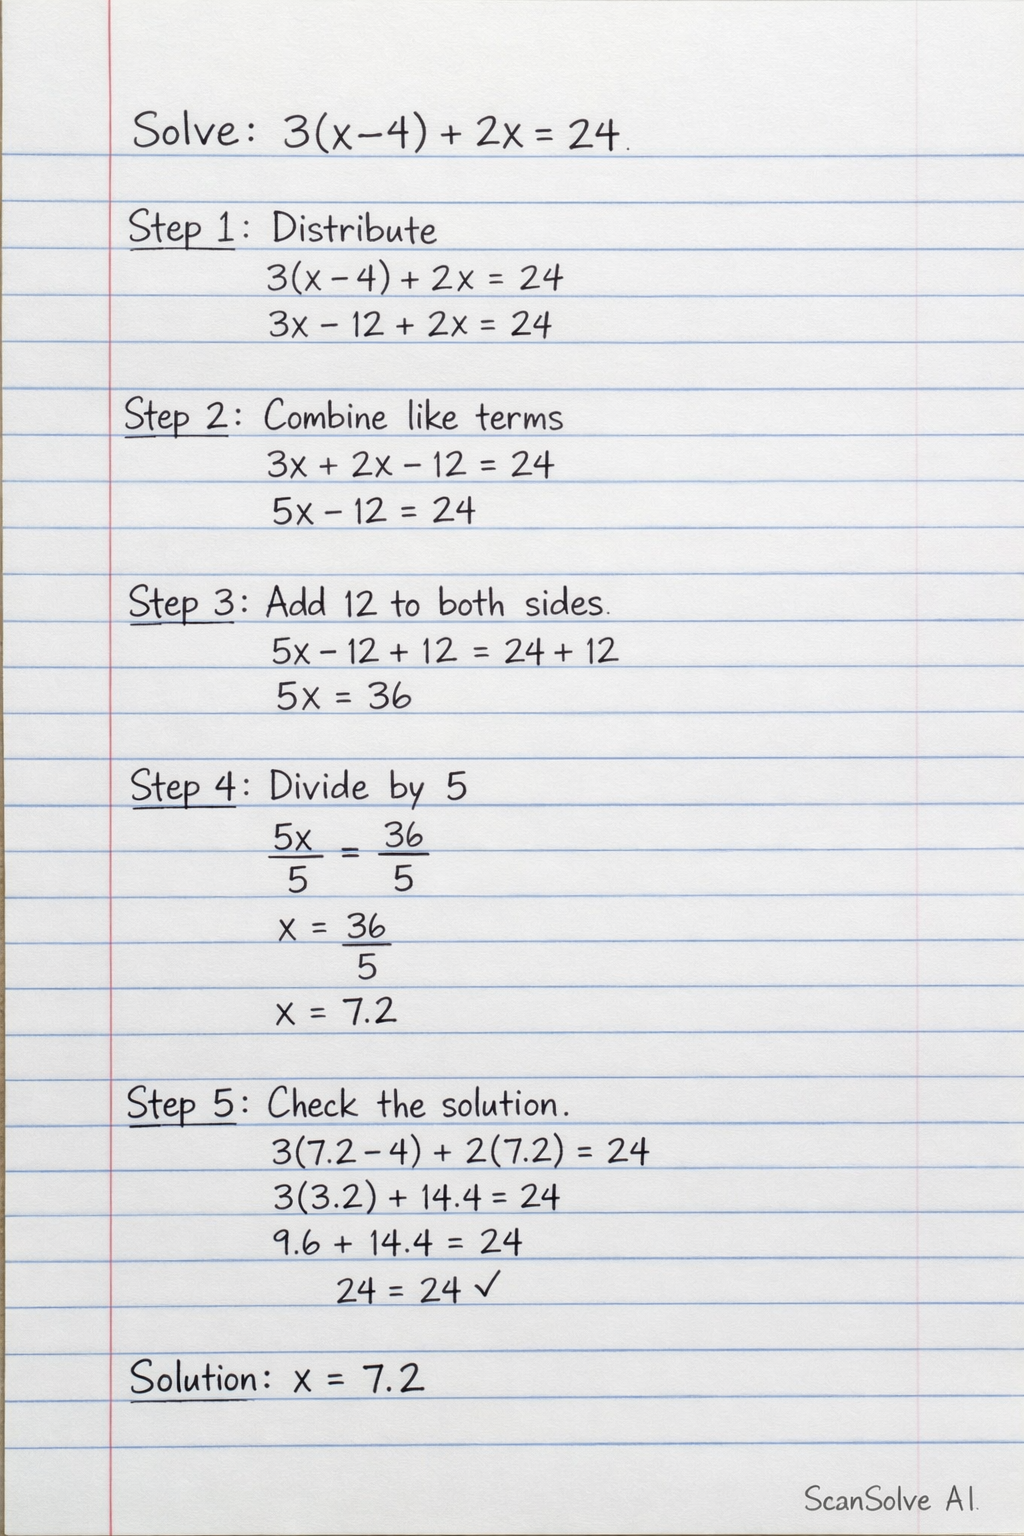 Solve: 3(x−4) + 2x = 24.
Step 1: Distribute
3(x − 4) + 2x = 24
3x − 12 + 2x = 24
Step 2: Combine like terms
3x + 2x − 12 = 24
5x − 12 = 24
Step 3: Add 12 to both sides.
5x − 12 + 12 = 24 + 12
5x = 36
Step 4: Divide by 5
5x/5 = 36/5
x = 36/5
x = 7.2
Step 5: Check the solution.
3(7.2 − 4) + 2(7.2) = 24
3(3.2) + 14.4 = 24
9.6 + 14.4 = 24
24 = 24 ✓
Solution: x = 7.2
ScanSolve AI.